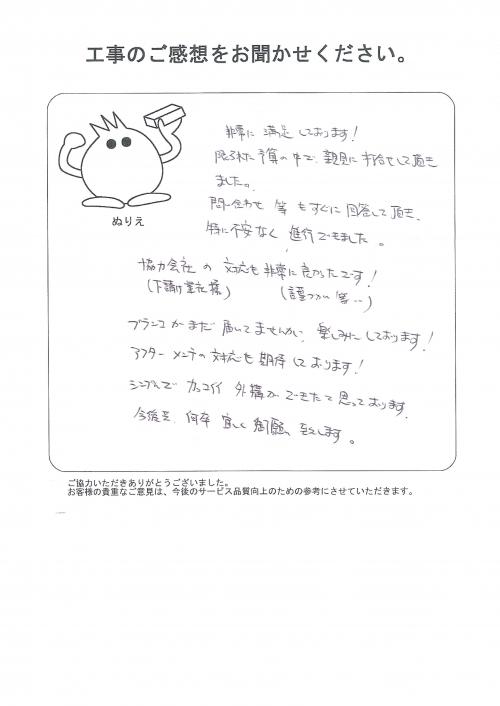 工事のご感想をお聞かせください。
ぬりえ
非常に 満足 しております!
限られた 予算の中で、親身に 打合せして頂き
ました。
問い合わせ 等 も すぐに 回答して 頂き、
特に不安なく 進行できました 。
協力会社 の 対応も 非常に 良かったです!
(下請け業社様) (言葉づかい 等‥)
ブランコ が まだ 届いてませんが、楽しみに しております!
アフターメンテの 対応も 期待しております!
シンプルで カッコイイ 外構が できたと 思っております。
今後共、何卒 宜しく 御願い 致します。
ご協力いただきありがとうございました。
お客様の貴重なご意見は、今後のサービス品質向上のための参考にさせていただきます。